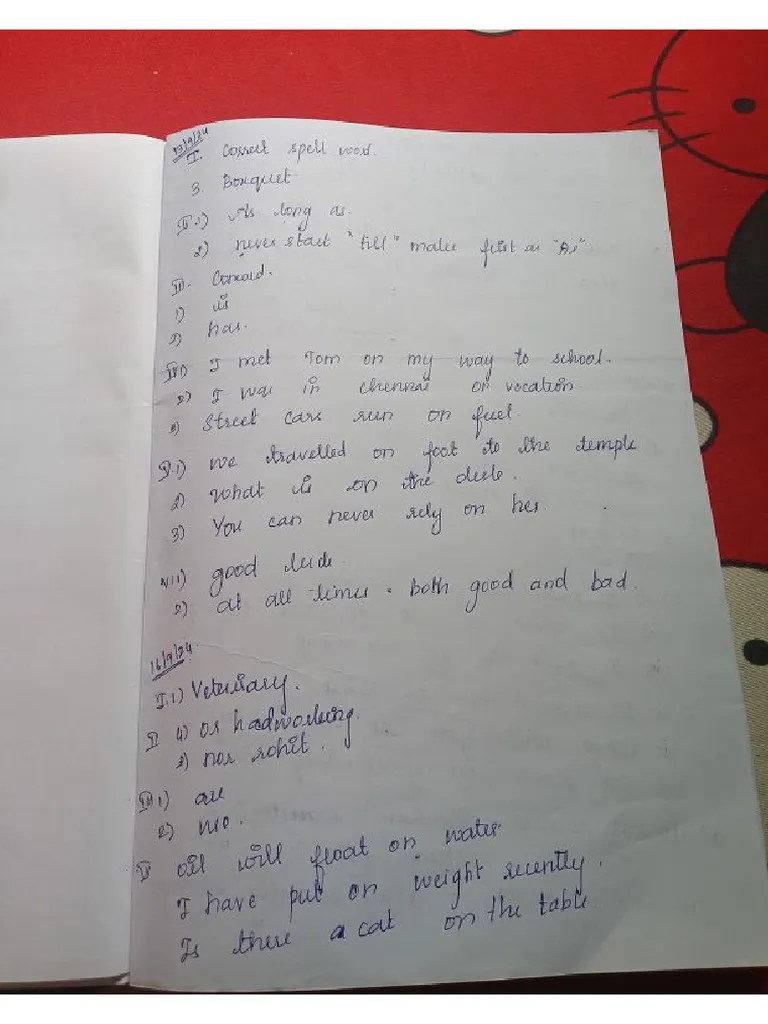 13/9/24
I. Correct spell word.
3. Bouquet
II.1) As long as.
2) never start "till" make first as "As".
III. Correct.
1) is
2) has.
IV1) I met Tom on my way to school.
2) I was in chennai on vocation
3) Street cars run on fuel.
V.1) we travelled on foot to the temple
2) what is on the desk.
3) You can never rely on her.
VI1) good luck
2) at all times - both good and bad.
16/9/24
I.1) Veterinary.
II 4) or hadworking.
3) nor rohit.
III 1) are
2) me.
V oil will float on water
I have put on weight recently.
Is there a cat on the table